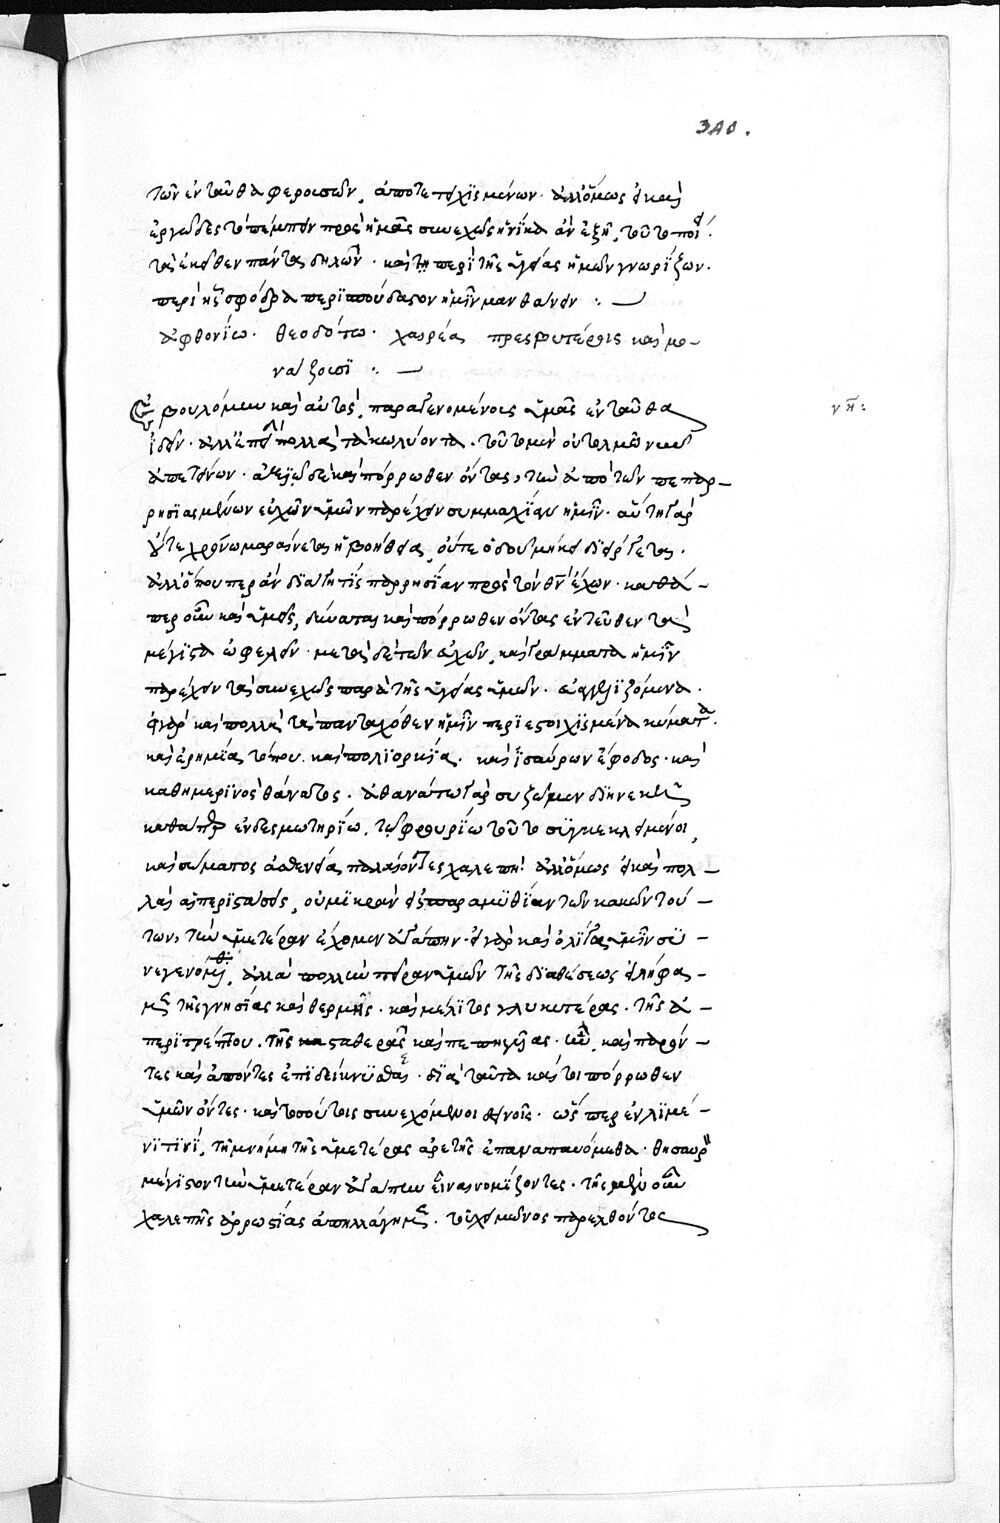 340.
τῶν ἐνταῦθα φερουσῶν, ἀποτετειχισμένων. ἀλλ' ὅμως εἰ καὶ
ἐργῶδες τὸ πέμπειν πρὸς ἡμᾶς συνεχῶς ἡνίκα ἂν ἐξῇ, τοῦτο ποιεῖ.
τὰ ἐκεῖθεν πάντα δηλῶν. καὶ τὰ περὶ τῆς ὑγείας ἡμῶν γνωρίζων.
περὶ ἧς σφόδρα περισπούδαστον ἡμῖν μανθάνειν :
ἀφθονίω. θεοδότω. χαιρέα πρεσβυτέροις καὶ μο-
νάζουσι :
νη:
Ἐβουλόμην καὶ αὐτὸς, παραγενομένους ὑμᾶς ἐνταῦθα
ἰδεῖν. ἀλλ' ἐπεὶ πολλὰ τὰ κωλύοντα. τοῦτο μὲν οὐ τολμῶμεν
ἀπαιτεῖν. ἀξιῶ δὲ καὶ πόρρωθεν ὄντας, τὴν ἀπὸ τῶν πεπαρ-
ρησιασμένων εὐχῶν ὑμῶν παρέχειν συμμαχίαν ἡμῖν. αὕτη γὰρ
οὔτε χρόνω μαραίνεται ἡ βοήθεια, οὔτε ὁδοῦ μήκει διείργεται.
ἀλλ' ὅπου περ ἂν διάγη τίς παρρησίαν πρὸς τὸν θν ἔχων. καθά-
περ οὖν καὶ ὑμεῖς, δύναται καὶ πόρρωθεν ὄντας ἐντεῦθεν τὰ
μέγιστα ὠφελεῖν. μετὰ δὲ τῶν εὐχῶν, καὶ γράμματα ἡμῖν
παρέχειν τὰ συνεχῶς παρὰ τῆς ὑγείας ὑμῶν. εὐαγγελιζόμενα.
εἰ γὰρ καὶ πολλὰ τὰ πανταχόθεν ἡμῖν περιεστοιχισμένα κύματα.
καὶ ἐρημία τόπου. καὶ πολιορκία. καὶ ἰσαύρων ἔφοδος. καὶ
καθημερινὸς θάνατος. θανάτω γὰρ συζῶμεν διηνεκεῖ
καθάπερ ἐν δεσμωτηρίω, τῷ φρουρίω τούτω συγκεκλεισμένοι,
καὶ σώματος ἀσθενεία παλαίοντες χαλεπῇ. ἀλλ' ὅμως εἰ καὶ πολ-
λαὶ αἱ περιστάσεις, οὐ μικρὰν εἰς παραμυθίαν τῶν κακῶν τού-
των, τὴν ὑμετέραν ἔχομεν ἀγάπην. εἰ γὰρ καὶ ὀλίγα ὑμῖν συ-
νεγενόμεθα, ἀλλὰ πολλὴν πεῖραν ὑμῶν τῆς διαθέσεως εἰλήφα-
μεν τῆς γνησίας καὶ θερμῆς. καὶ μέλιτος γλυκυτέρας. τῆς ἀ-
περιτρέπτου. τῆς σταθερᾶς καὶ πεπηγυίας. ἣν, καὶ παρόν-
τες καὶ ἀπόντες ἐπιδείκνυσθε. διὰ ταῦτα καίτοι πόρρωθεν
ὑμῶν ὄντες. καὶ τοσούτοις συνεχόμενοι δεινοῖς. ὥσπερ ἐν λιμέ-
νι τινὶ, τῇ μνήμη τῆς ὑμετέρας ἀρετῆς ἐπαναπαυόμεθα. θησαυρὸν
μέγιστον τὴν ὑμετέραν ἀγάπην εἶναι νομίζοντες. τῆς μεταξὺ οὖν
χαλεπῆς ἀρρωστίας ἀπηλλάγημεν. τοῦ χειμῶνος παρελθόντος